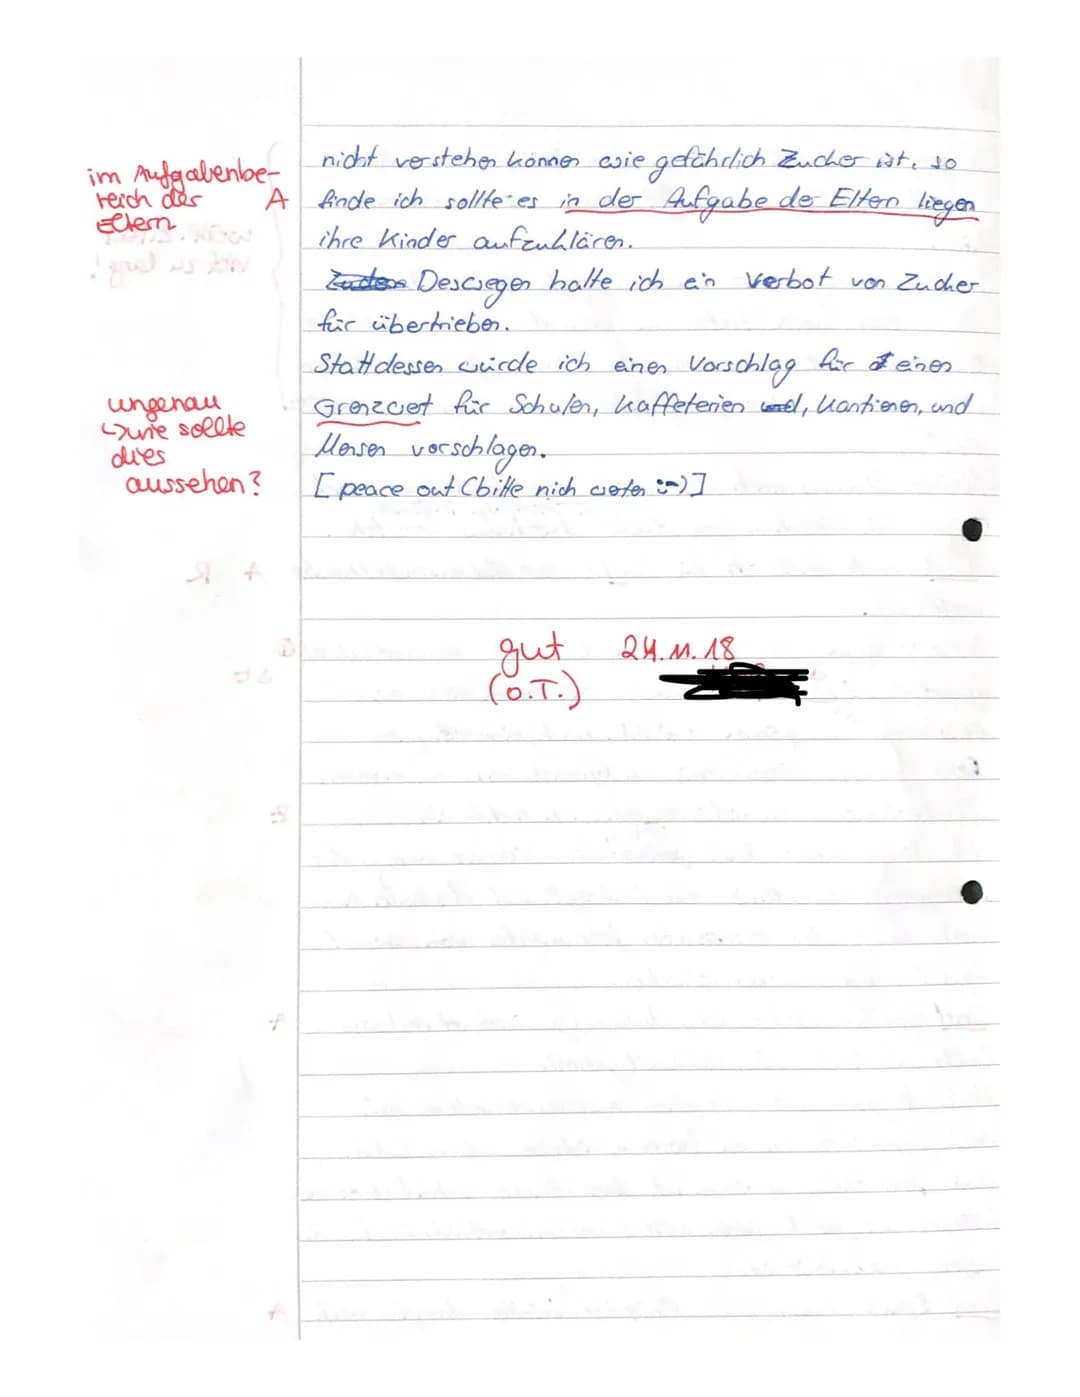 im Aufgabenbe-
reich der A
Eltern
nicht verstehen können wie gefährlich Zucker ist, so
finde ich sollte es in der Aufgabe der Eltern liegen
ihre Kinder aufzuklären.
Zudem Deswegen halte ich ein Verbot von Zucker
für übertrieben.
Stattdessen würde ich einen Vorschlag für einen
ungenau
↳wie sollte
dies
aussehen?
Grenzwet für Schulen, Kaffeterien und, Kantienen, und
Mensen vorschlagen.
[peace out (bitte nich werten :-)]
gut 24.11.18
(O.T.)